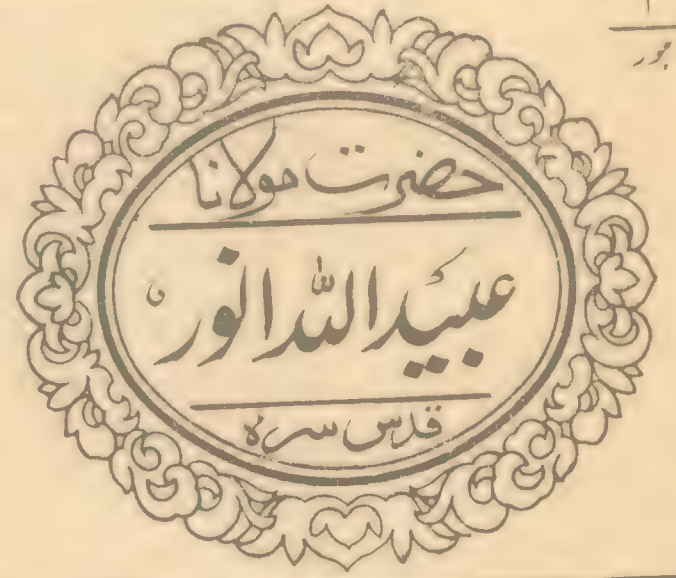 حضرت مولانا
عبیداللہ انور
قدس سرہ